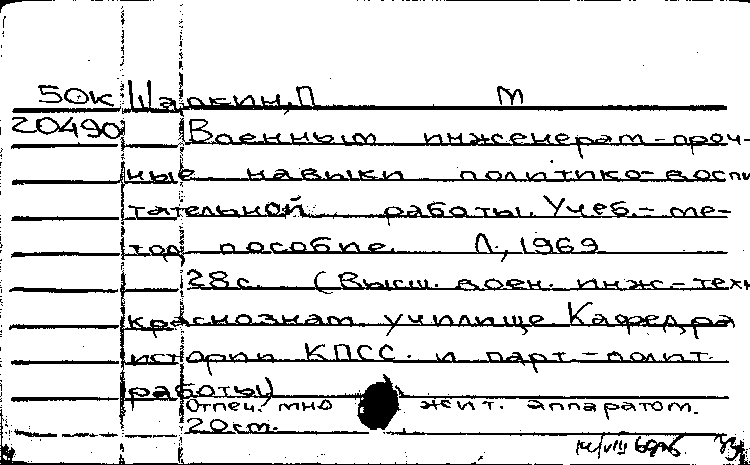 50к Шапкин, П М
20490 Военным инженерам-проч-
ные навыки политико-воспи
тательной работы. Учеб.-ме-
тод пособие. Л., 1969
28с. (Высш. воен. инж-техн
краснознам. училище Кафедра
истории КПСС. и парт-полит.
работы)
Отпеч. мно жит. аппаратом.
20см.